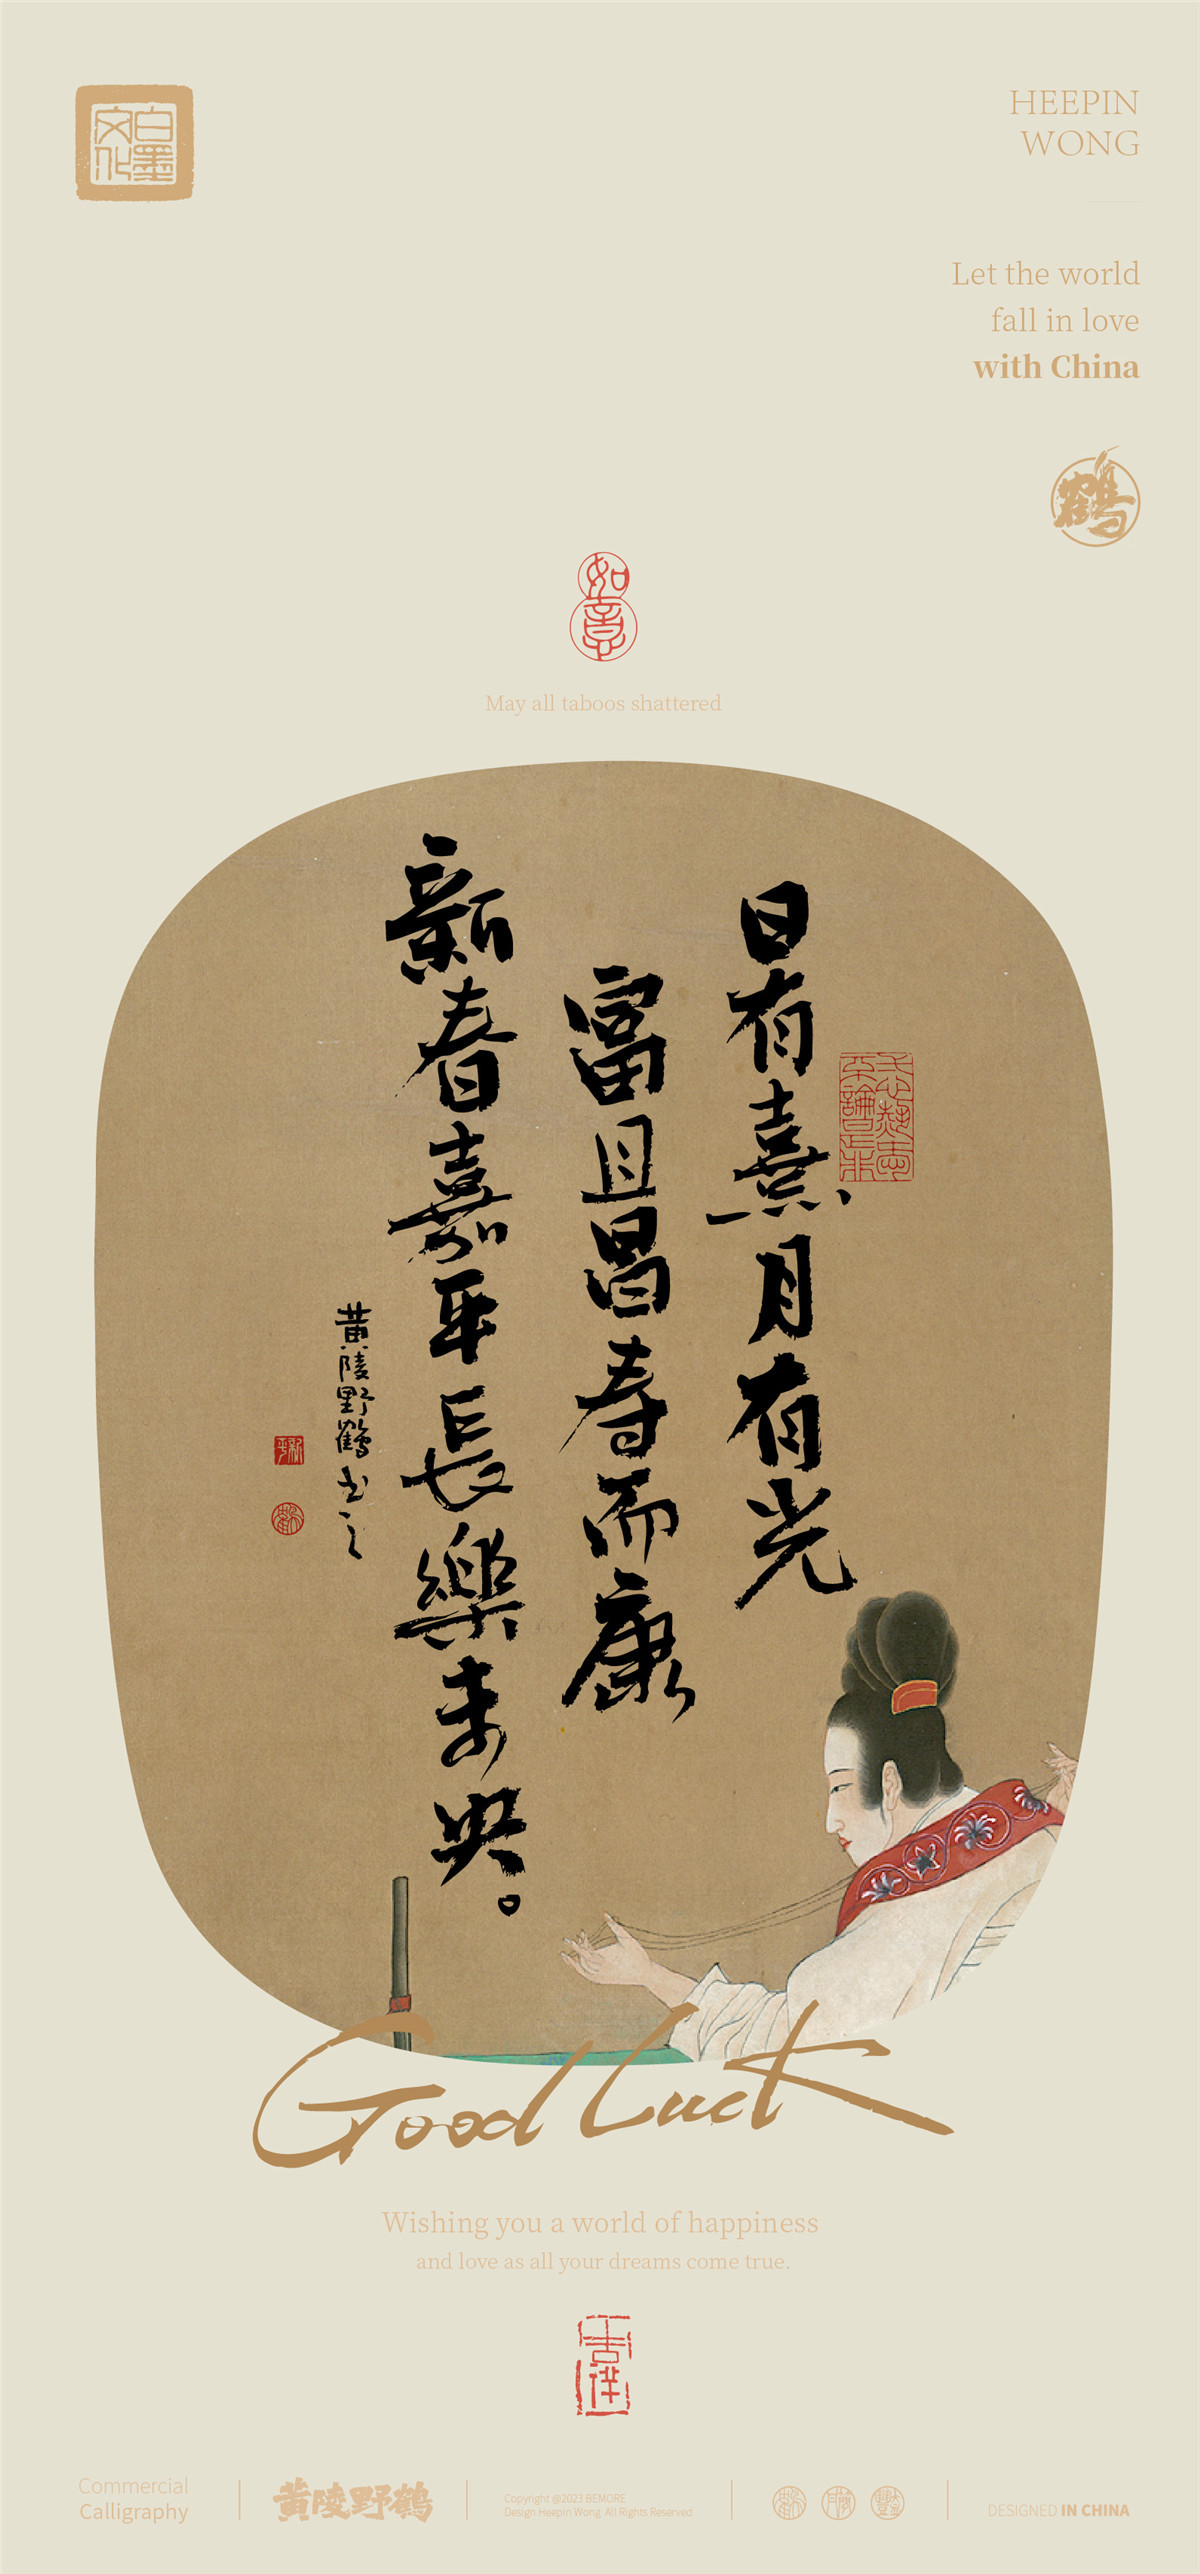 白墨
文化
HEEPIN
WONG
Let the world
fall in love
with China
鶴
如意
May all taboos shattered
日有熹月有光
富且昌寿而康
新春嘉年長樂未央。
黄陵野鶴书之
Good Luck
Wishing you a world of happiness
and love as all your dreams come true.
吉祥
Commercial
Calligraphy
黄陵野鶴
Copyright @2023 BEMORE
Design Heepin Wong. All Rights Reserved
DESIGNED IN CHINA